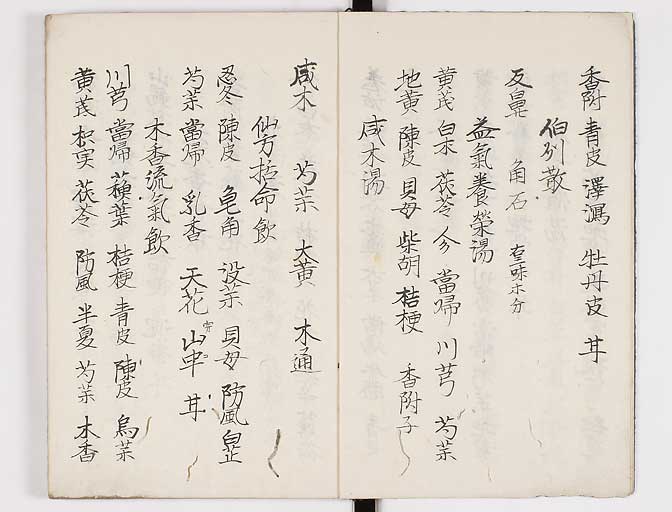 香附 青皮 澤瀉 牡丹皮 甘
伯州散
反鼻 角石 右二味等分
益氣養榮湯
黄茂 白朮 茯苓 参 當帰 川芎 芍薬
地黄 陳皮 貝母 柴胡 桔梗 香附子
咸木湯
咸木 芍薬 大黄 木通
仙方括命飲
忍冬 陳皮 皂角 没薬 貝母 防風 白芷
芍薬 當帰 乳香 天花 山甲 甘
木香流氣飲
川芎 當帰 蘓葉 桔梗 青皮 陳皮 烏薬
黄茂 枳実 茯苓 防風 半夏 芍薬 木香